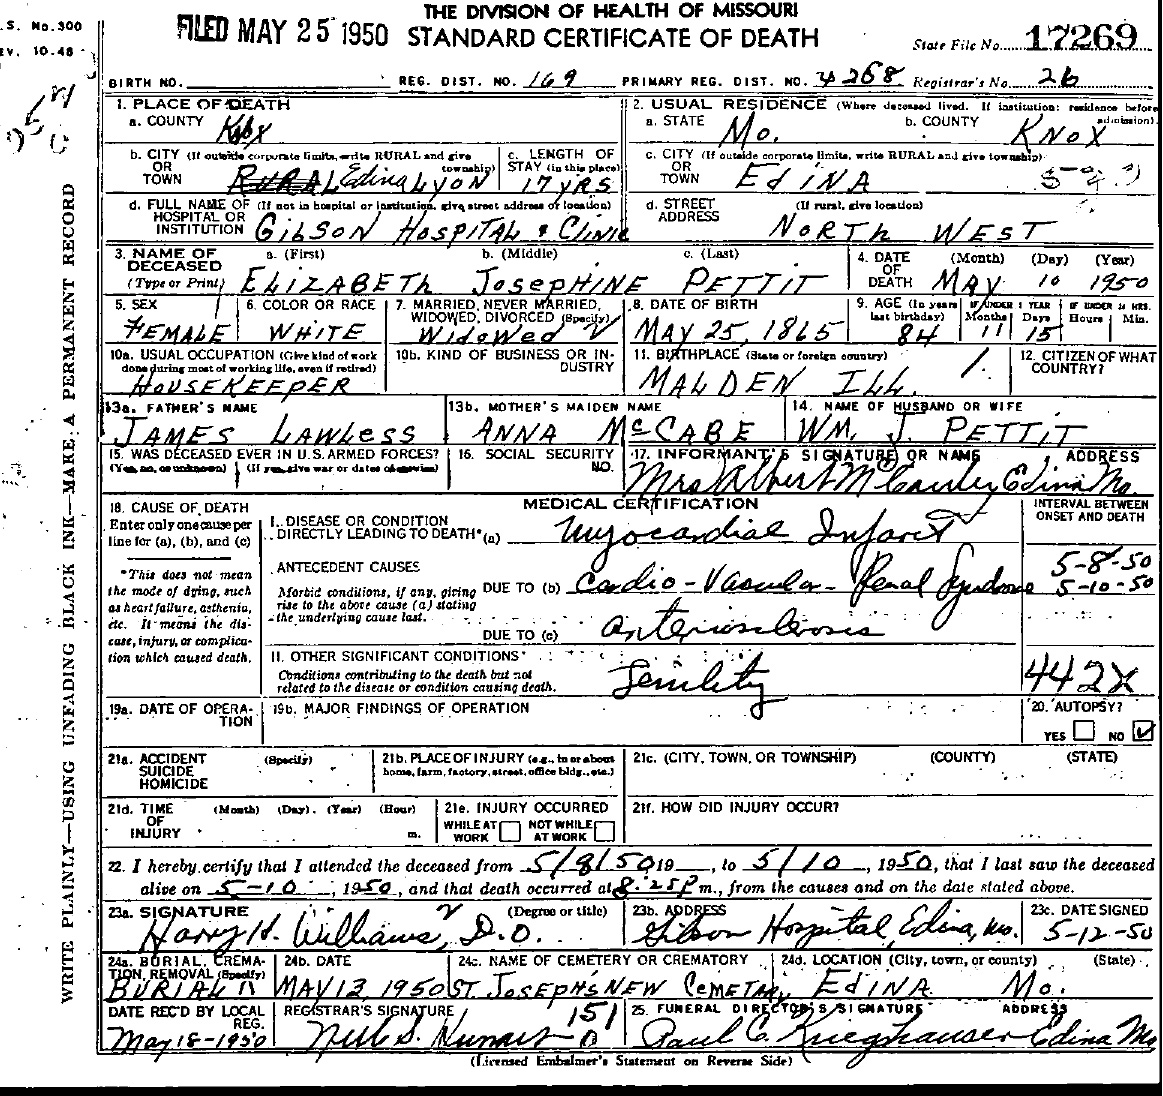 THE DIVISION OF HEALTH OF MISSOURI
S. No.300
FILED MAY 25 1950 STANDARD CERTIFICATE OF DEATH
State File No. 17269
EV. 10-48
BIRTH NO. REG. DIST. NO. 169 PRIMARY REG. DIST. NO. 4268 Registrar's No. 26
1. PLACE OF DEATH
a. COUNTY Knox
2. USUAL RESIDENCE (Where deceased lived. If institution: residence before admission).
a. STATE Mo. b. COUNTY KNOX
b. CITY (If outside corporate limits, write RURAL and give township)
OR
TOWN RURAL Edina LYON
c. LENGTH OF STAY (in this place)
17 yRS
c. CITY (If outside corporate limits, write RURAL and give township)
OR
TOWN EDINA
d. FULL NAME OF (If not in hospital or institution, give street address or location)
HOSPITAL OR
INSTITUTION GIBSON HOSPITAL & CLINIC
d. STREET (If rural, give location)
ADDRESS NORTH WEST
3. NAME OF DECEASED (Type or Print)
a. (First) b. (Middle) c. (Last)
ELIZABETH JOSEPHINE PETTIT
4. DATE OF DEATH (Month) (Day) (Year)
MAY 10 1950
5. SEX
FEMALE
6. COLOR OR RACE
WHITE
7. MARRIED, NEVER MARRIED, WIDOWED, DIVORCED (Specify)
WIDOWED
8. DATE OF BIRTH
MAY 25, 1865
9. AGE (In years last birthday) 84
IF UNDER 1 YEAR Months 11 Days 15
IF UNDER 24 HRS. Hours Min.
10a. USUAL OCCUPATION (Give kind of work done during most of working life, even if retired)
HOUSEKEEPER
10b. KIND OF BUSINESS OR INDUSTRY
11. BIRTHPLACE (State or foreign country)
MALDEN ILL.
12. CITIZEN OF WHAT COUNTRY?
13a. FATHER'S NAME
JAMES LAWLESS
13b. MOTHER'S MAIDEN NAME
ANNA McCABE
14. NAME OF HUSBAND OR WIFE
WM. J. PETTIT
15. WAS DECEASED EVER IN U.S. ARMED FORCES?
(Yes, no, or unknown) (If yes, give war or dates of service)
16. SOCIAL SECURITY NO.
17. INFORMANT'S SIGNATURE OR NAME ADDRESS
Mrs Albert McCauley Edina Mo.
18. CAUSE OF DEATH
Enter only one cause per line for (a), (b), and (c)
*This does not mean the mode of dying, such as heart failure, asthenia, etc. It means the disease, injury, or complication which caused death.
MEDICAL CERTIFICATION
I. DISEASE OR CONDITION
DIRECTLY LEADING TO DEATH*(a) Myocardial Infarct
INTERVAL BETWEEN ONSET AND DEATH
5-8-50
5-10-50
ANTECEDENT CAUSES
Morbid conditions, if any, giving rise to the above cause (a) stating the underlying cause last.
DUE TO (b) Cardio-Vascular-Renal Syndrome
DUE TO (c) arteriosclerosis
II. OTHER SIGNIFICANT CONDITIONS
Conditions contributing to the death but not related to the disease or condition causing death.
Senility
442X
19a. DATE OF OPERATION
19b. MAJOR FINDINGS OF OPERATION
20. AUTOPSY?
YES NO
21a. ACCIDENT (Specify)
SUICIDE
HOMICIDE
21b. PLACE OF INJURY (e.g., in or about home, farm, factory, street, office bldg., etc.)
21c. (CITY, TOWN, OR TOWNSHIP) (COUNTY) (STATE)
21d. TIME OF INJURY (Month) (Day) (Year) (Hour) m.
21e. INJURY OCCURRED
WHILE AT WORK NOT WHILE AT WORK
21f. HOW DID INJURY OCCUR?
22. I hereby certify that I attended the deceased from 5/8/50, 19 , to 5/10, 1950, that I last saw the deceased
alive on 5-10, 1950, and that death occurred at 8:25P m., from the causes and on the date stated above.
23a. SIGNATURE (Degree or title)
Harry H. Williams, D.O.
23b. ADDRESS
Gibson Hospital, Edina, Mo.
23c. DATE SIGNED
5-12-50
24a. BURIAL, CREMATION, REMOVAL (Specify)
BURIAL
24b. DATE
MAY 13, 1950
24c. NAME OF CEMETERY OR CREMATORY
ST JOSEPH'S NEW CEMETARY
24d. LOCATION (City, town, or county) (State)
EDINA Mo.
DATE REC'D BY LOCAL REG.
May 18-1950
REGISTRAR'S SIGNATURE
151
25. FUNERAL DIRECTOR'S SIGNATURE ADDRESS
Paul C. Krieghauser Edina Mo
(Licensed Embalmer's Statement on Reverse Side)
WRITE PLAINLY—USING UNFADING BLACK INK—MAKE A PERMANENT RECORD